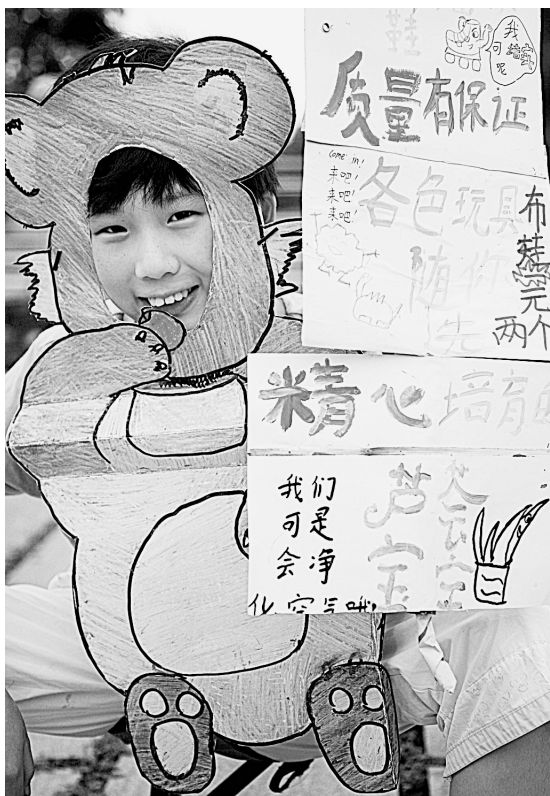 我
可
呢
质量有保证
come in!
来吧!
来吧!
来吧!
各色玩具
随你
先
布
元
两个
精心培育
我们
可是
会净
化空气哦!
芦荟
宝宝